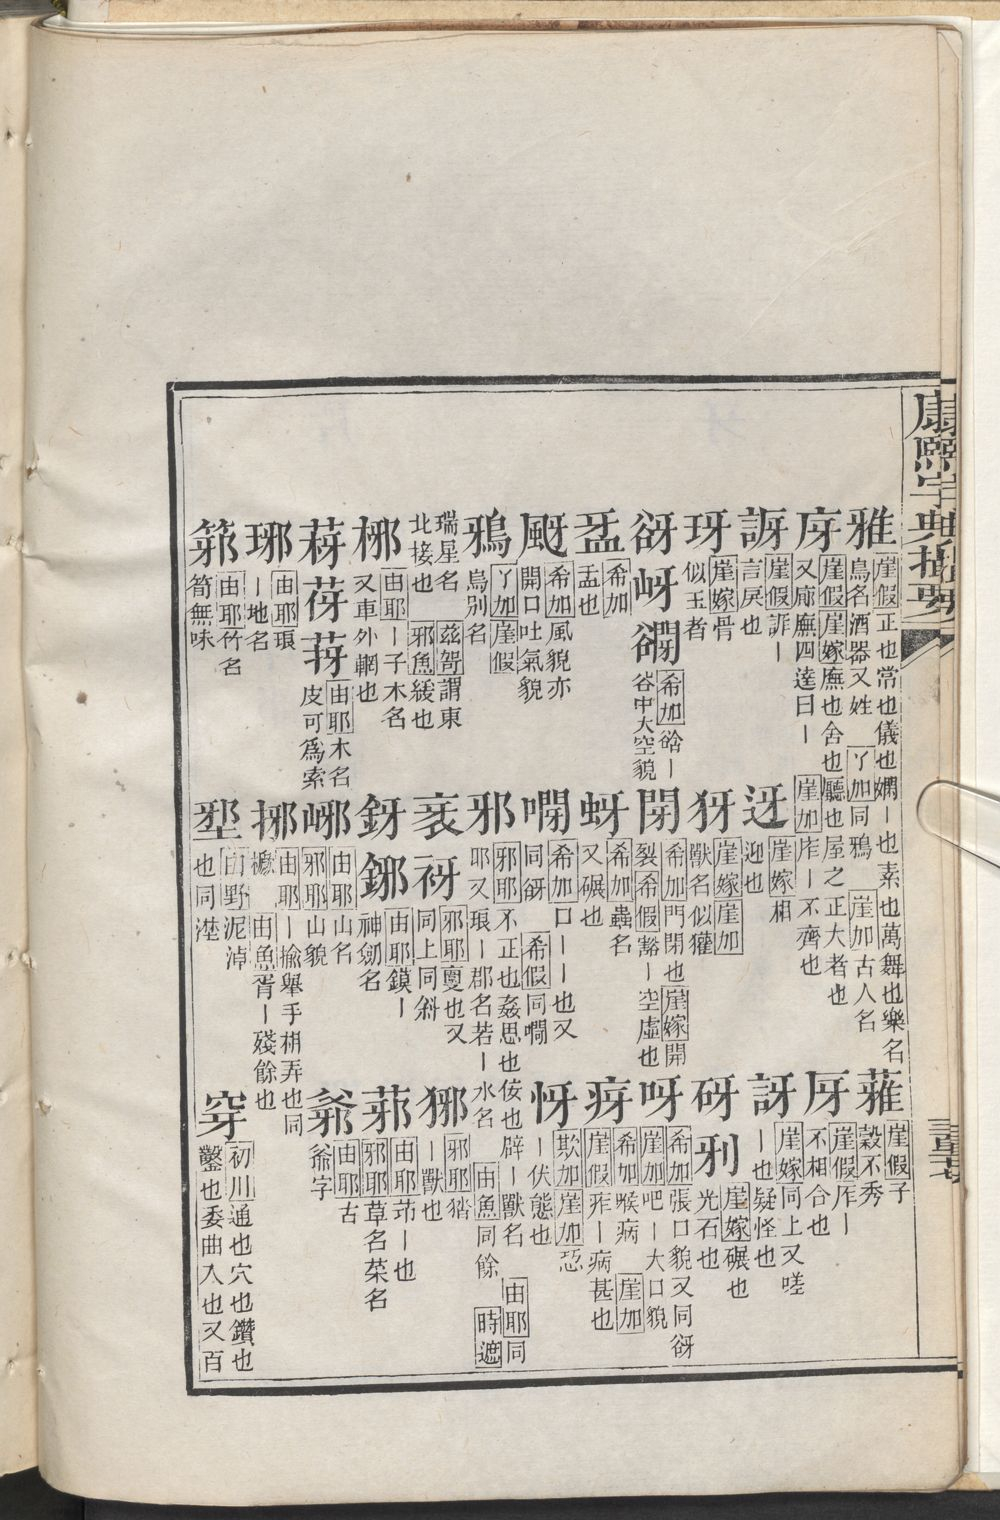 康熙字典撮要
雅 崖假 正也常也儀也嫻丨也素也萬舞也樂名
鳥名酒器又姓 丫加 同鴉 崖加 古人名
蕥 崖假 子
穀不秀
庌 崖假 崖嫁 廡也舍也廳也屋之正大者也
又廊廡四達曰丨 崖加 庌丨不齊也
厊 崖假 厏丨
不相合也
謑 崖假 訝丨
言戾也
迓 崖嫁 相
迎也
訝 崖嫁 同上又嗟
丨也疑怪也
玡 崖嫁 骨
似玉者
犽 崖嫁 崖加
獸名似獾
砑 㓨 崖嫁 碾也
光石也
谺 岈 谽 希加 谽丨
谷中大空貌
閕 希加 門閉也 崖嫁 開
裂 希假 豁丨空虛也
呀 希加 張口貌又同谺
崖加 吧丨大口貌
盓 希加
盂也
蚜 希加 蟲名
又碾也
疨 希加 喉病 崖加
崖假 痄丨病甚也
颬 希加 風貌亦
開口吐氣貌
㗇 希加 口丨丨也又
同谺 希假 同㗇
怜 欺加 崖加 恐
丨伏態也
鴉 丫加 崖假
烏別名
邪 邪耶 不正也姦思也佞也辟丨獸名 由耶 同
耶又琅丨郡名若丨水名 由魚 同餘 時遮
瑞星名 茲哿 謂東
北接也 邪魚 緩也
衺 衧 邪耶 裒也又
同上同斜
㺠 邪耶 猪
丨獸也
枒 由耶 丨子木名
又車外輞也
釾 鎁 由耶 鏌丨
神劒名
䓉 由耶 茚丨也
邪耶 草名菜名
䔑 芽 荂 由耶 木名
皮可爲索
㟇 由耶 山名
邪耶 山貌
爺 由耶 古
爺字
瑘 由耶 琅
丨地名
揶 由耶 丨揄舉手相弄也同
擨 由魚 胥丨殘餘也
䈇 由耶 竹名
筍無味
埜 由野 泥淖
也同埿
穿 初川 通也穴也鑽也
鑿也委曲入也又百